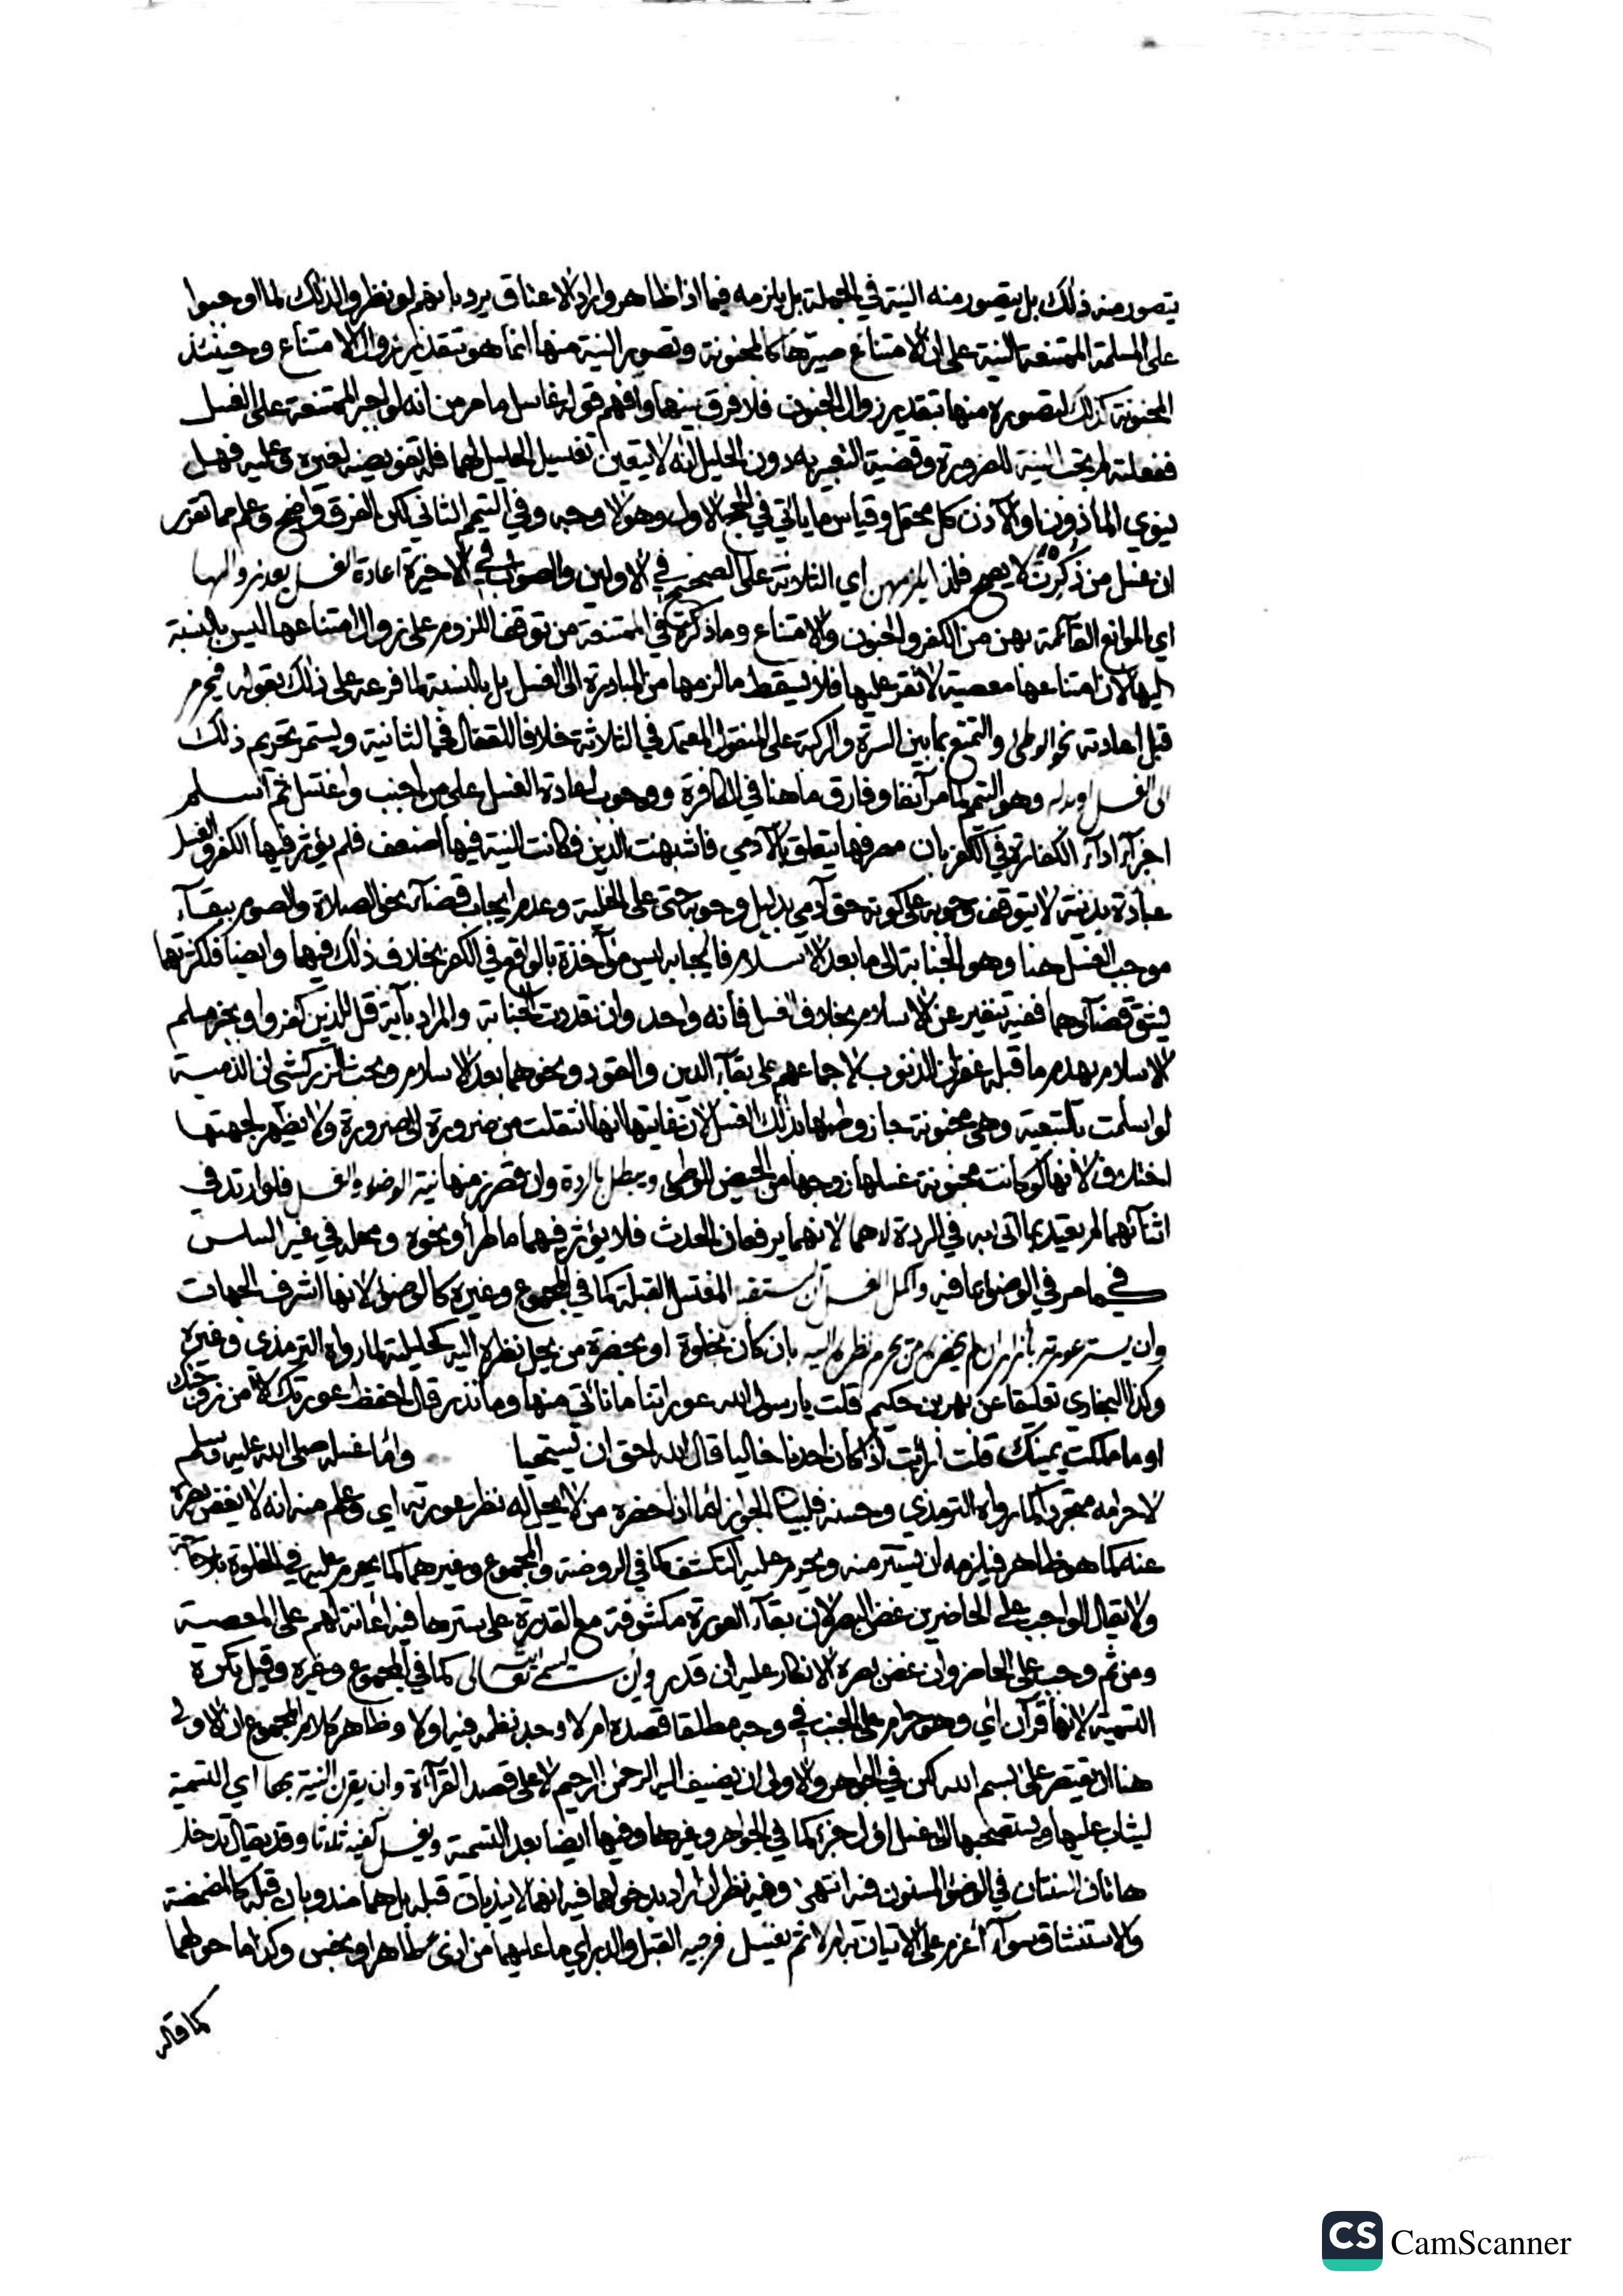 يتصور منه ذلك بل يتصور منه النية في الجملة بل يلزمه فيما اذا ظاهر واراد الاعتاق يرد بانهم لو نظروا لذلك لما اوجبوا
على المسلمة الممتنعة النية على ان الامتناع صيرها كالمجنونة وتصور النية منها انما هو بتقدير زوال الامتناع وحينئذ
المجنونة كذلك لتصوره منها بتقدير زوال الجنون فلا فرق بينهما وافهم قوله غاسل ما مر من انه لو اجبر الممتنعة على الغسل
ففعلته لم يجب النية للضرورة وقضية التعبير به دون الحليل انه لا يتعين تغسيل الحليل لهما فله تفويضه لغيره وعليه فهل
ينوي الماذون او الآذن كل محتمل وقياس ما ياتي في الحج الاول وهو الاوجه وفي التيمم الثاني لكن الفرق واضح وعلم مما تقرر
ان غسل من ذكرت لا يصح فلذا يلزمهن اي الثلاثة على الصحيح في الاولين والصواب في الاخيرة اعادة الغسل بعد زوالها
اي الموانع القائمة بهن من الكفر والجنون والامتناع وما ذكرت في الممتنعة من توقف اللزوم على زوال امتناعها ليس بالنسبة
اليها لان امتناعها معصية لا تقر عليها فلا يسقط ما لزمها من المبادرة الى الغسل بل بالنسبة لما فرعه على ذلك بقوله فيحرم
قبل اعادته نحو الوطئ والتمتع بما بين السرة والركبة على المنقول المعتمد في الثلاثة خلافا للقفال في الثانية ويستمر تحريم ذلك
الى الغسل او بدله وهو التيمم لما مر آنفا وفارق ما هنا في الكافرة ووجوب اعادة الغسل على من اجنب واغتسل ثم اسلم
اجزآء ادآء الكفارة في الكفر بان مصرفها يتعلق بالآدمي فاشبهت الدين فكانت النية فيها اضعف فلم يؤثر فيها الكفر والغسل
عبادة بدنية لا يتوقف وجوبه على كونه حق آدمي بدليل وجوبه حتى على المغلبة وعدم ايجاب قضآء نحو الصلاة والصوم ببقآء
موجب الغسل هنا وهو الجنابة الى ما بعد الاسلام فايجابه ليس مؤاخذة بالواقع في الكفر بخلاف ذلك فيهما وايضا فلكثرتهما
فيشق قضآؤهما ففيه تنفير عن الاسلام بخلاف الغسل فانه واحد وان تعددت الجنابة والمراد بآية قل للذين كفروا وبخبر مسلم
الاسلام يهدم ما قبله غفران الذنوب لاجماعهم على بقآء الدين والقود ونحوهما بعد الاسلام وبحث الزركشي ان الذمية
لو اسلمت بالتبعية وهي مجنونة جاز وطئها بذلك الغسل لان غايتها انها انتقلت من ضرورة الى ضرورة ولا يظهر لجهتها
اختلاف لانها لو كانت مجنونة غسلها زوجها من الحيض للوطئ ويبطل بالردة وان قصر زمنها نية الوضوء والغسل فلو ارتد في
اثنائهما لم يعتد بما اتى به في الردة لا هما لانهما يرفعان الحدث فلا يؤثر فيهما ما طرأ ونحوه ومحله في غير السلس
كما مر في الوضوء بما فيه واكمل الغسل ان يستقبل المغتسل القبلة كما في المجموع وغيره كالوضوء لانها اشرف الجهات
وان يستر عورته بازار ان لم يحضره من يحرم نظره اليه بان كان بخلوة او بحضرة من يحل نظره اليه كحليلته لما رواه الترمذي وغيره
وكذا البخاري تعليقا عن بهز بن حكيم قلت يا رسول الله عوراتنا ما ناتي منها وما نذر قال احفظ عورتك الا من زوجتك
او ما ملكت يمينك قلت أرأيت اذا كان احدنا خاليا قال الله احق ان يستحيا واما غسله صلى الله عليه وسلم
لاحرامه متجردا كما رواه الترمذي وحسنه فلبيان الجواز اما اذا حضره من لا يحل له نظر عورته اي وعلم منه انه لا يغض بصره
عنه كما هو ظاهر فيلزمه ان يستتر منه ويحرم عليه التكشف كما في الروضة والمجموع وغيرهما كما يحرم عليه في الخلوة بلا حاجة
ولا يقال الواجب على الحاضرين غض البصر لان بقآء العورة مكشوفة مع القدرة على سترها فيه اعانة لهم على المعصية
ومن ثم وجب على الحاضر وان غض بصره الانكار عليه ان قدر وان يسم الله تعالى كما في المجموع وغيره وقيل تكره
التسمية لانها قرآن اي وهو حرام على الجنب في وجه مطلقا قصده ام لا وجد نظمه فيه او لا وظاهر كلام المجموع ان الاولى
هنا ان يقتصر على بسم الله لكن في الجواهر والاولى ان يضيف اليه الرحمن الرحيم لا على قصد القرآءة وان يقرن النية بها اي التسمية
ليثاب عليها ويستصحبها الى غسل اول جزء كما في الجواهر وغيرها وفيها ايضا بعد التسمية ويغسل كفيه ثلاثا وقد يقال تدخل
هاتان السنتان في الوضوء المسنون فيه انتهى وفيه نظر ان اراد بدخولهما فيه انهما لا يندبان قبله بل هما مندوبان قبله كالمضمضة
والاستنشاق سوآء أعزم على الاتيان به ام لا ثم يغسل فرجيه القبل والدبر اي ما عليهما من اذى طاهر او نجس وكذا ما حولهما
كما قاله